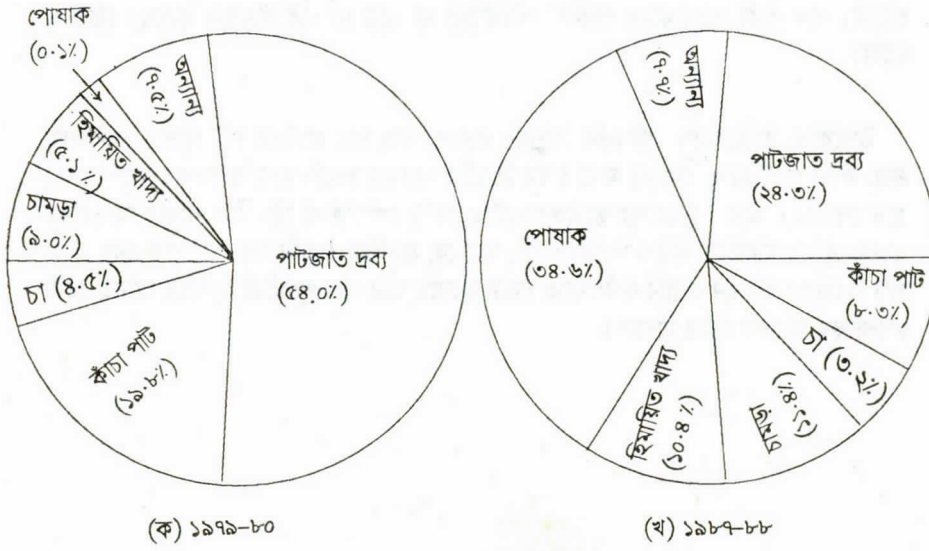 পোষাক
(০·১%)
অন্যান্য
(৭·৫%)
হিমায়িত খাদ্য
(৫·১%)
চামড়া
(৯·০%)
চা (৪.৫%)
কাঁচা পাট
(১৯·৮%)
পাটজাত দ্রব্য
(৫৪.০%)
(ক) ১৯৭৯-৮০
অন্যান্য
(৭.৭%)
পাটজাত দ্রব্য
(২৪·৩%)
পোষাক
(৩৪·৬%)
কাঁচা পাট
(৮·৩%)
চা (৩·২%)
চামড়া
হিমায়িত খাদ্য
(১০·৪%)
(খ) ১৯৮৭-৮৮